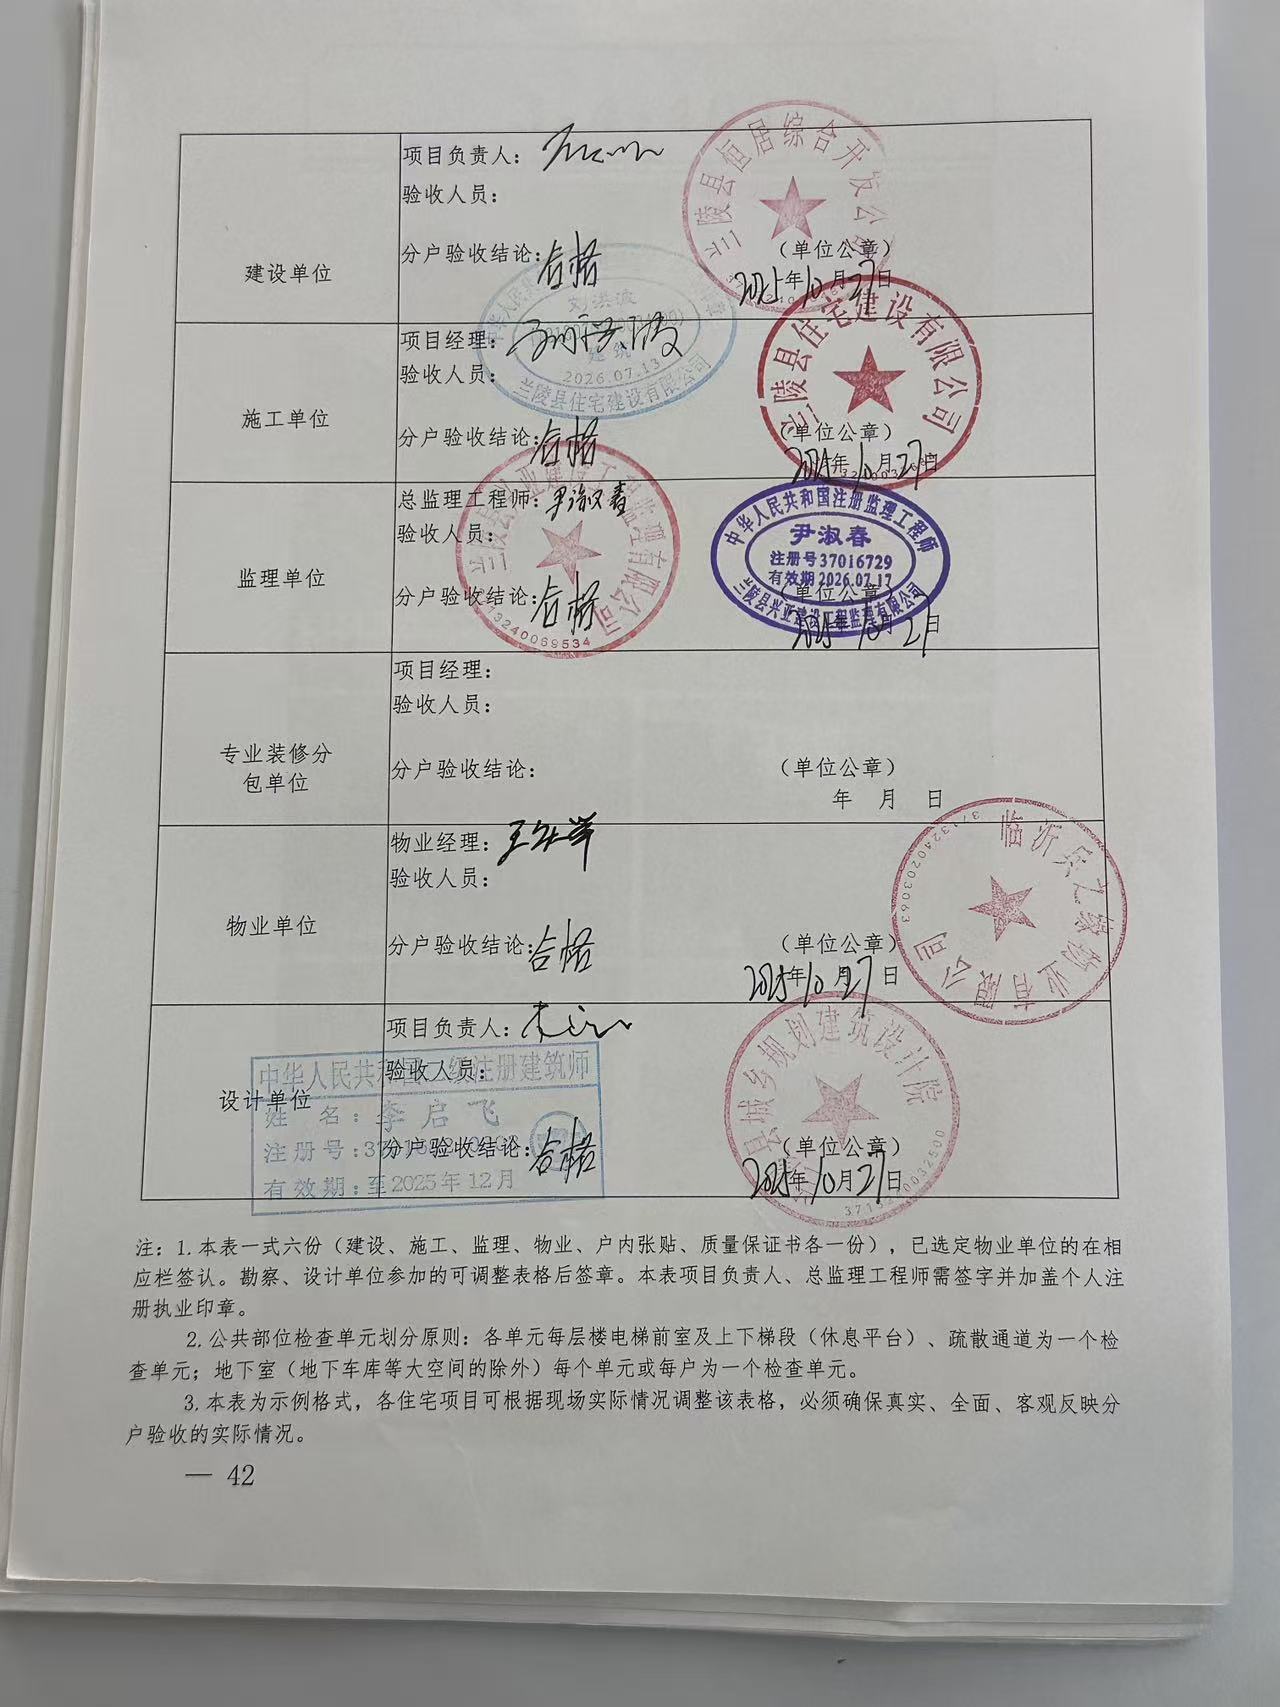 建设单位
项目负责人：
验收人员：
分户验收结论：合格
（单位公章）
2025年10月27日
兰陵县恒居综合开发公司
施工单位
项目经理：刘洪波
验收人员：
分户验收结论：合格
（单位公章）
2025年10月27日
刘洪波
建筑
2026.07.13
兰陵县住宅建设有限公司
兰陵县住宅建设有限公司
监理单位
总监理工程师：尹淑春
验收人员：
分户验收结论：合格
（单位公章）
2025年10月27日
兰陵县兴亚建设工程监理有限公司
3713240069534
中华人民共和国注册监理工程师
尹淑春
注册号37016729
有效期2026.07.17
兰陵县兴亚建设工程监理有限公司
专业装修分
包单位
项目经理：
验收人员：
分户验收结论：
（单位公章）
年 月 日
物业单位
物业经理：
验收人员：
分户验收结论：合格
（单位公章）
2025年10月27日
3713240203063
设计单位
项目负责人：
验收人员：
分户验收结论：合格
（单位公章）
2025年10月27日
县城乡规划建筑设计院
中华人民共和国二级注册建筑师
姓 名：李启飞
注册号：
有效期：至2025年12月
注：1.本表一式六份（建设、施工、监理、物业、户内张贴、质量保证书各一份），已选定物业单位的在相
应栏签认。勘察、设计单位参加的可调整表格后签章。本表项目负责人、总监理工程师需签字并加盖个人注
册执业印章。
2.公共部位检查单元划分原则：各单元每层楼电梯前室及上下梯段（休息平台）、疏散通道为一个检
查单元；地下室（地下车库等大空间的除外）每个单元或每户为一个检查单元。
3.本表为示例格式，各住宅项目可根据现场实际情况调整该表格，必须确保真实、全面、客观反映分
户验收的实际情况。
— 42